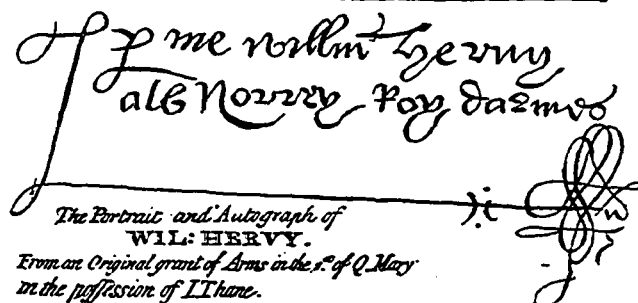 p me willm Hervy
als Norrey Roy darmes
The Portrait and Autograph of
WIL: HERVY.
From an Original grant of Arms in the 1.st of Q. Mary
in the poſſeſſion of I. Thane.